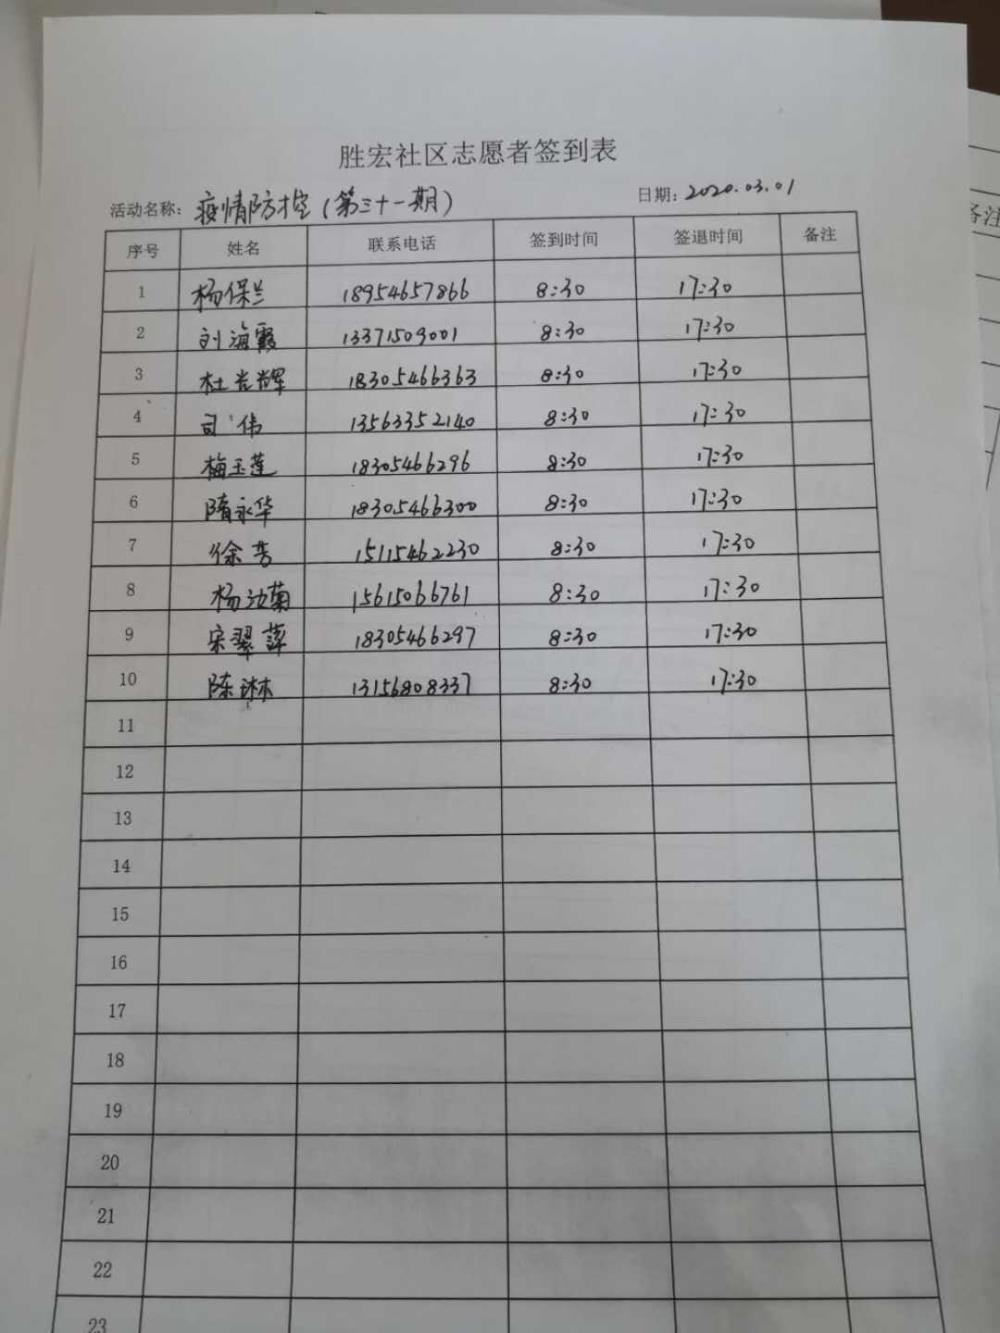 胜宏社区志愿者签到表
活动名称：疫情防控（第三十一期） 日期：2020.03.01
序号 姓名 联系电话 签到时间 签退时间 备注
1 杨保兰 18954657866 8:30 17:30
2 刘海霞 13371509001 8:30 17:30
3 杜光辉 18305466363 8:30 17:30
4 司伟 13563352140 8:30 17:30
5 梅玉莲 18305466296 8:30 17:30
6 隋永华 18305466300 8:30 17:30
7 徐芳 15115462230 8:30 17:30
8 杨汝菊 15615066761 8:30 17:30
9 宋翠萍 18305466297 8:30 17:30
10 陈琳 13156808337 8:30 17:30
11
12
13
14
15
16
17
18
19
20
21
22
23
备注